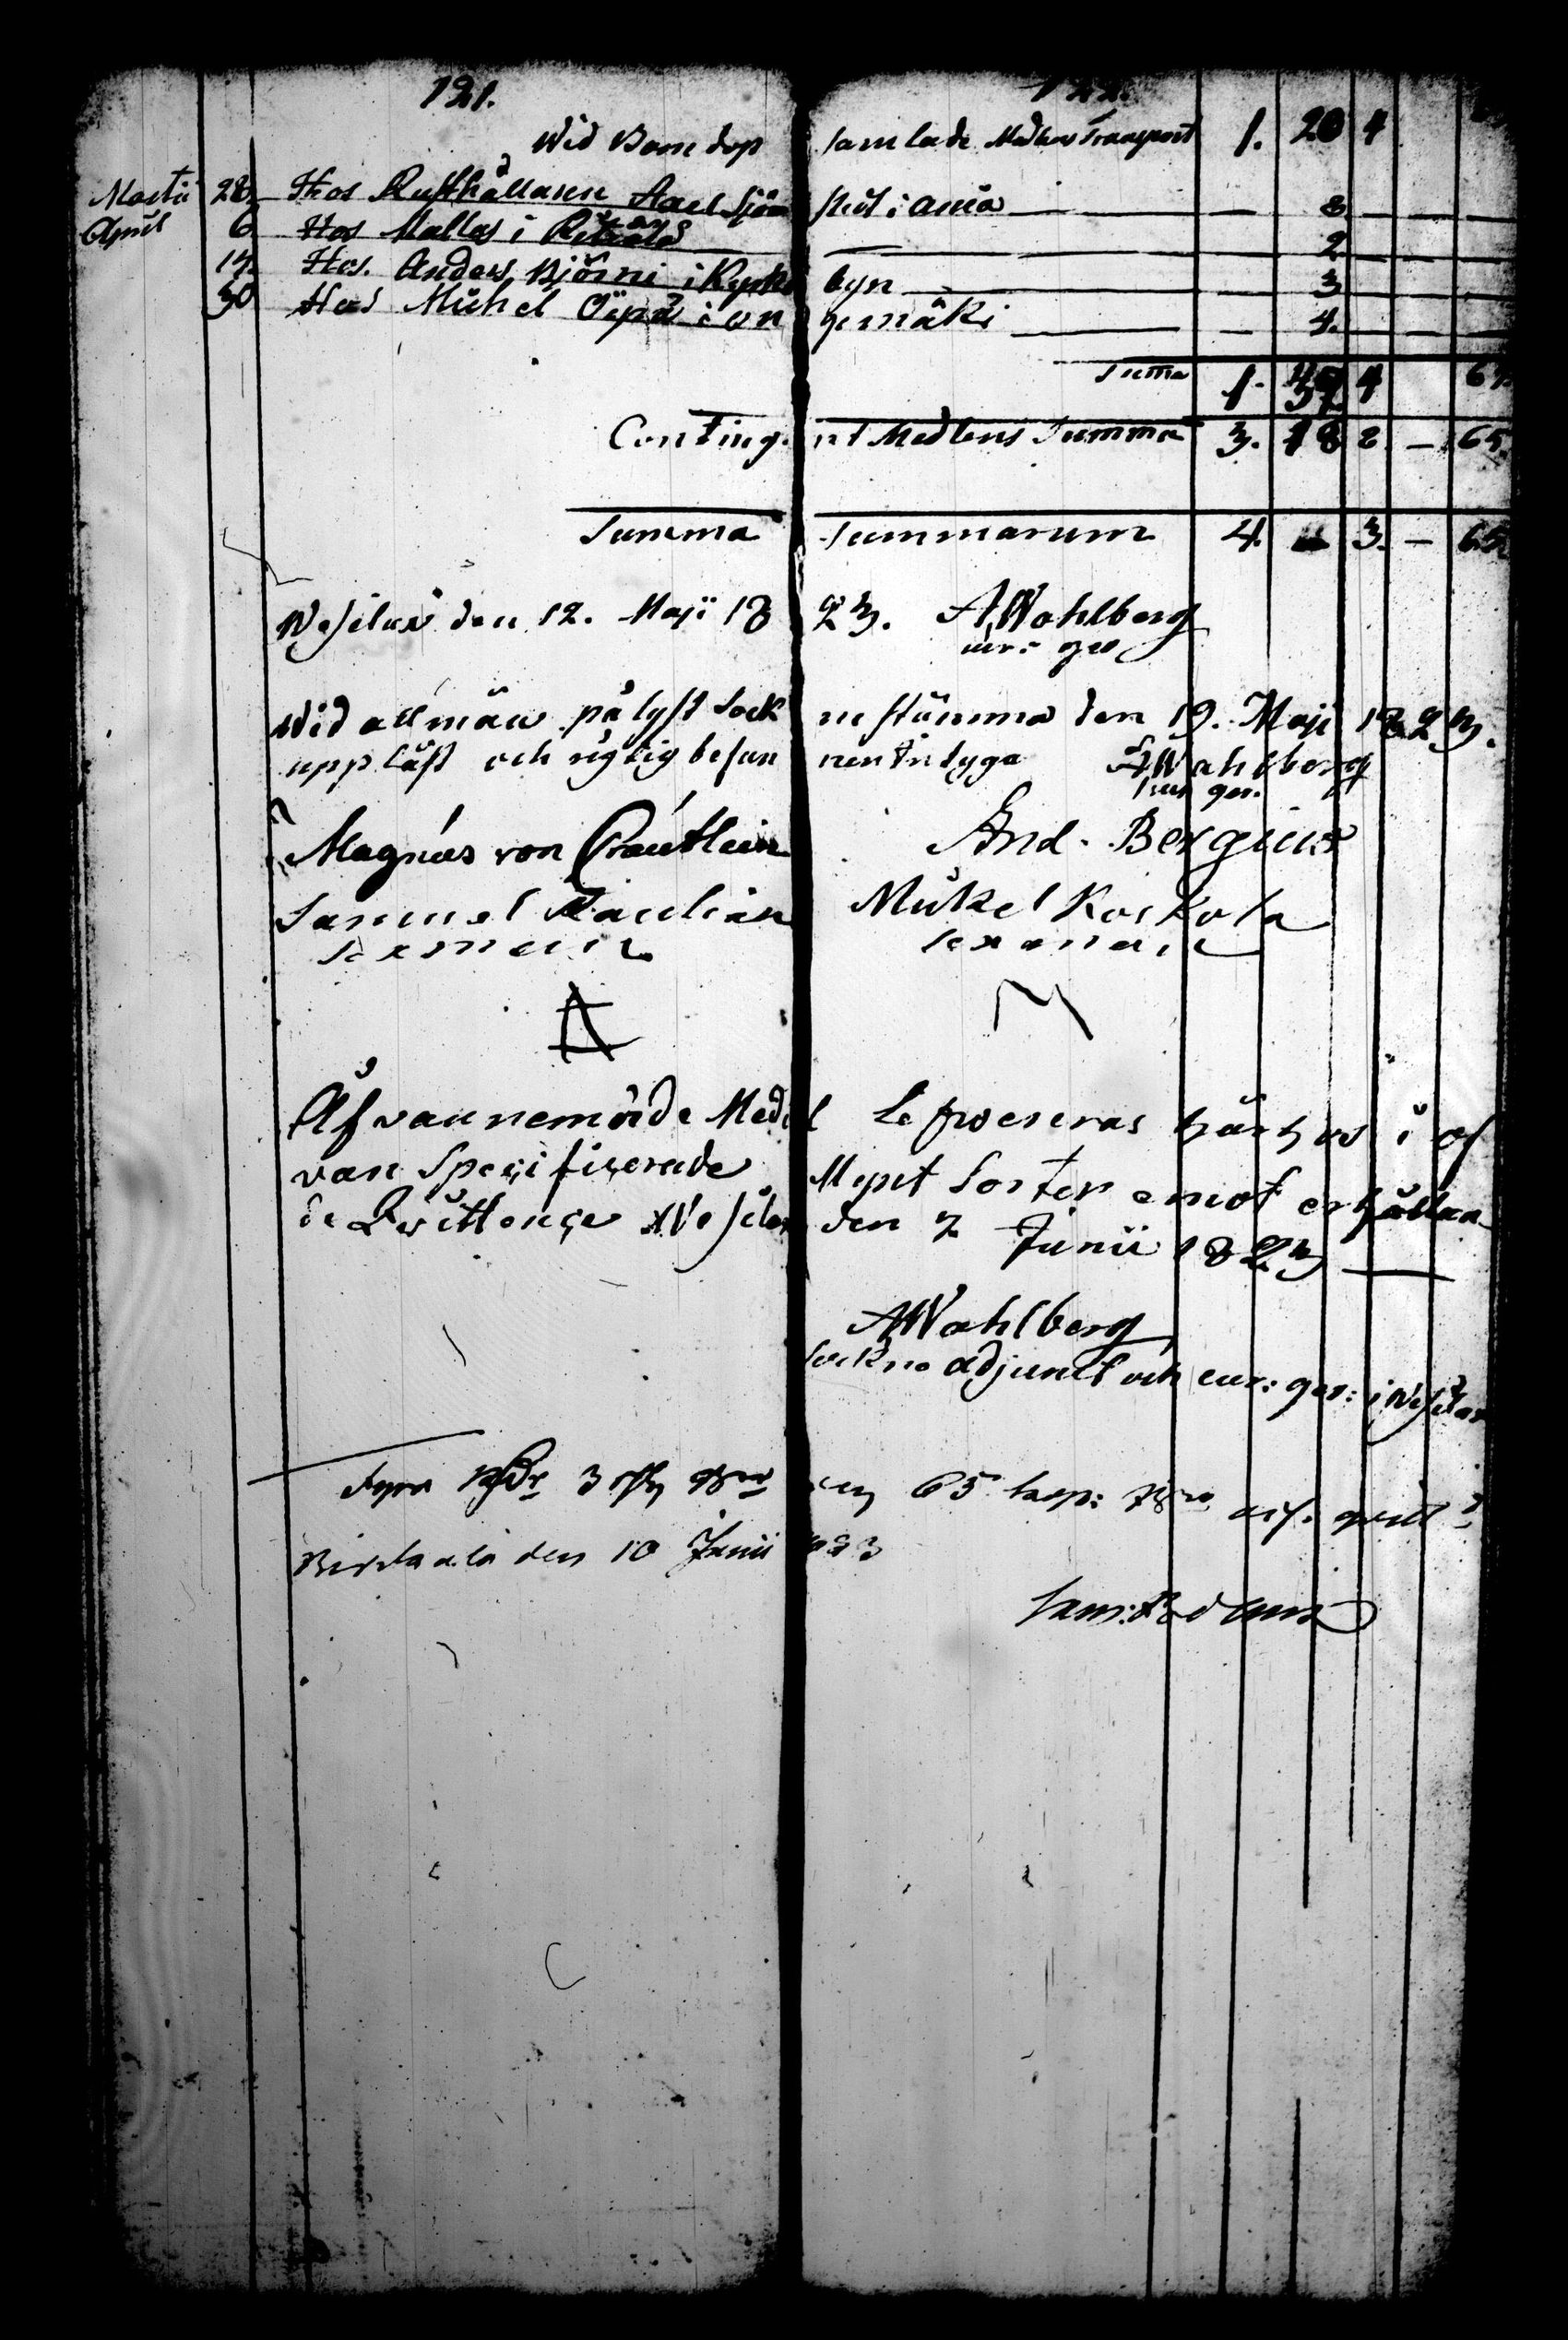 121.
Wid Barndop samlade Medlens Transport 1. 20 4
Martii 28. Hos Rusthållaren Axel Sjöstedt i Ania — — 8 — — —
April 6 Hos Mallas i — 2
14. Hos Anders Björni i Kyrkobyn — — 3 — — —
30 Hos Michel Öÿpä i Ongemäki — — 4. — — —
Summa 1. 37. 4
Contingent Medlens Summa 3. 18 2 — 65.
Summa Summarum 4. 3. — 65
Wesilax den 12. Maji 1823. A Wahlberg
cur: ger
Wid allmän pålyst Sockne stämma den 19. Maji 1823.
uppläst och rigtig befunnen intyga A Wahlberg
cur ger.
Magnus von Präutlein And. Bergius
Samuel Paulian Mickel Koskola
sexman sexman
A M
Åfvannemnde Medel leevereras härhos i of
van Specificerade Mynt Sorter emot erhållan
de Quittence Wesilax den 7 Junii 1823 —
A Wahlberg
Sockne adjunct och cur: ger: i Wesilax
Fyra Rdr 3 65 kop:
Birkala den 10 Junii 1823